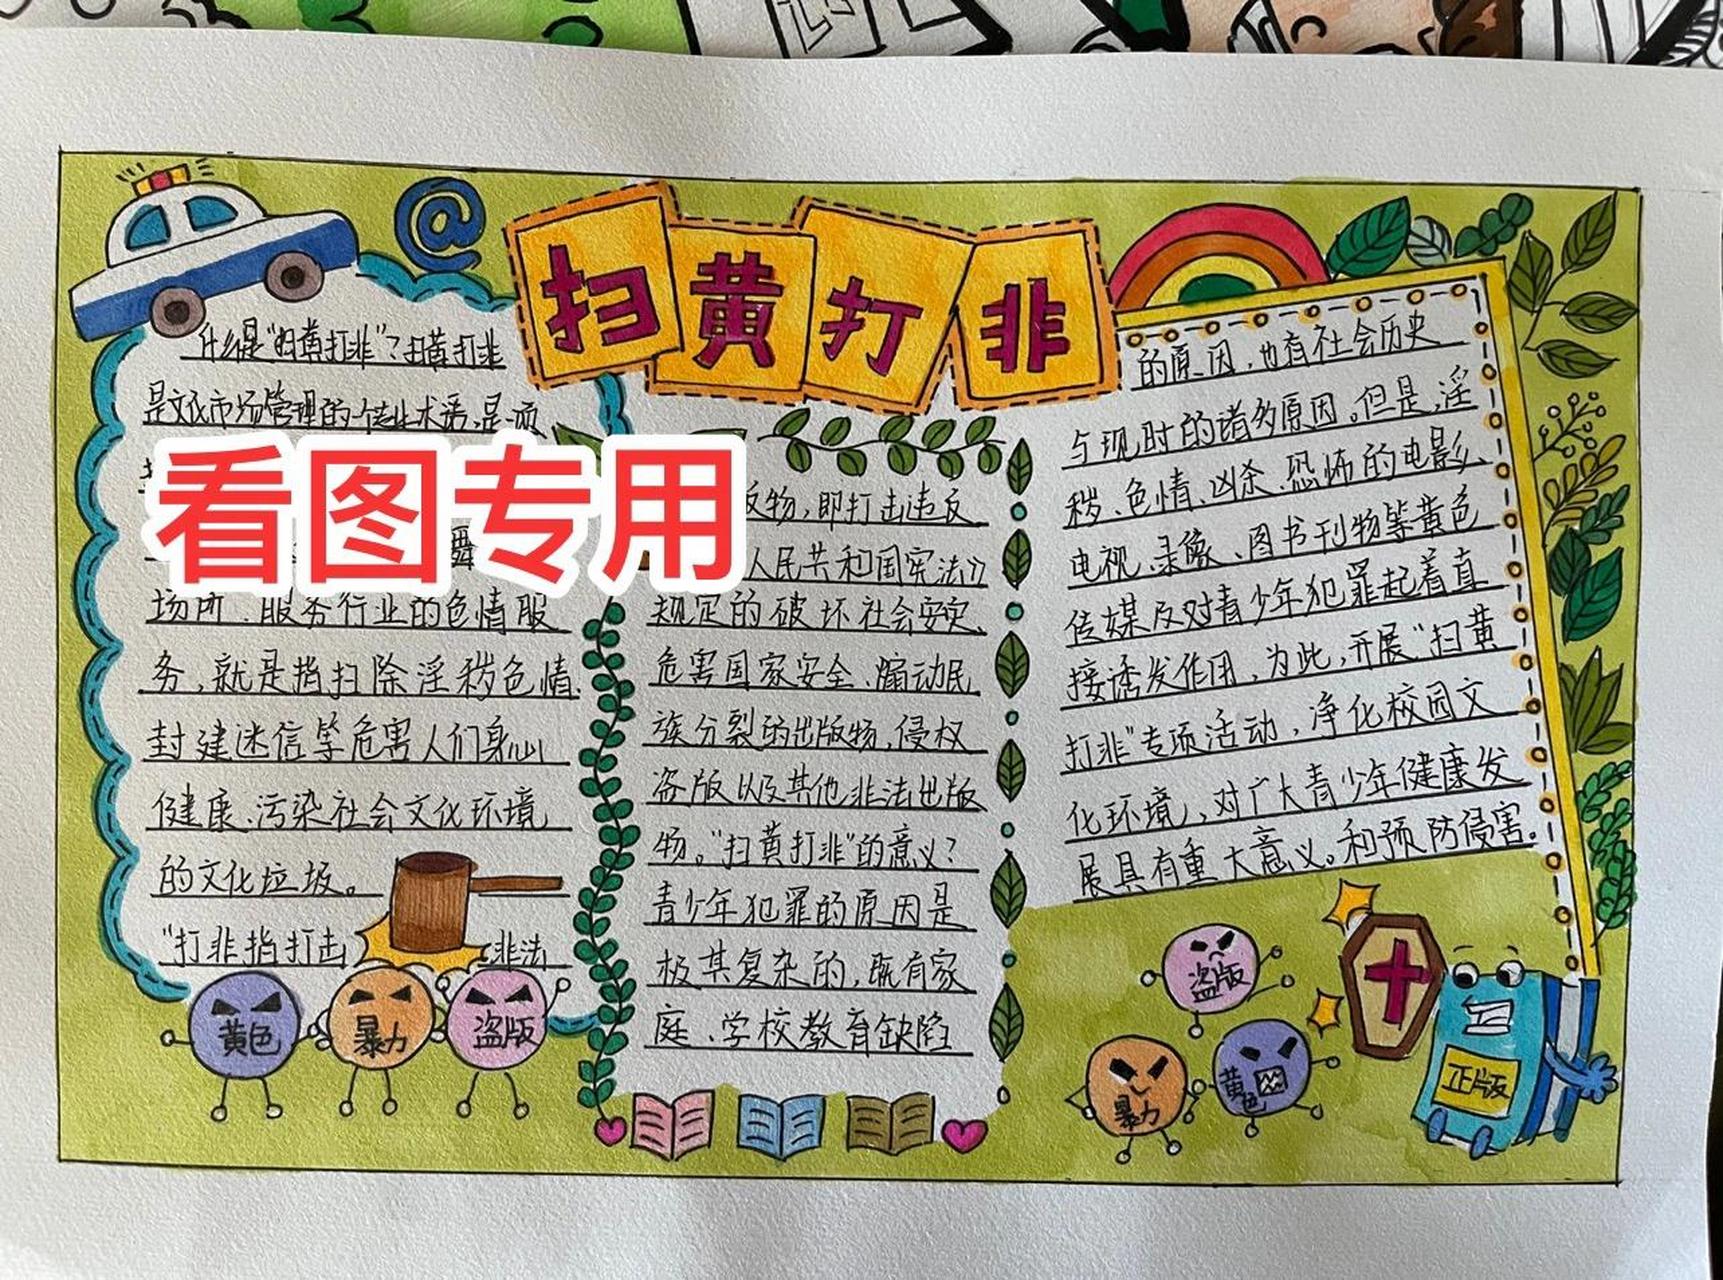 @
扫黄打非
什么是“扫黄打非”？扫黄打非
是文化市场管理的一个专业术语，是一项
看图专用
舞
场所、服务行业的色情服
务，就是指扫除淫秽色情、
封建迷信等危害人们身心
健康、污染社会文化环境
的文化垃圾。
“打非指打击
非法
黄色
暴力
盗版
版物，即打击违反
人民共和国宪法》
规定的破坏社会安定、
危害国家安全、煽动民
族分裂的出版物，侵权
盗版以及其他非法出版
物。“扫黄打非”的意义？
青少年犯罪的原因是
极其复杂的，既有家
庭、学校教育缺陷
的原因，也有社会历史
与现时的诸多原因。但是，淫
秽、色情、凶杀、恐怖的电影、
电视、录像、图书刊物等黄色
传媒及对青少年犯罪起着直
接诱发作用，为此，开展“扫黄
打非”专项活动，净化校园文
化环境，对广大青少年健康发
展具有重大意义。和预防侵害。
盗版
暴力
黄色
正版